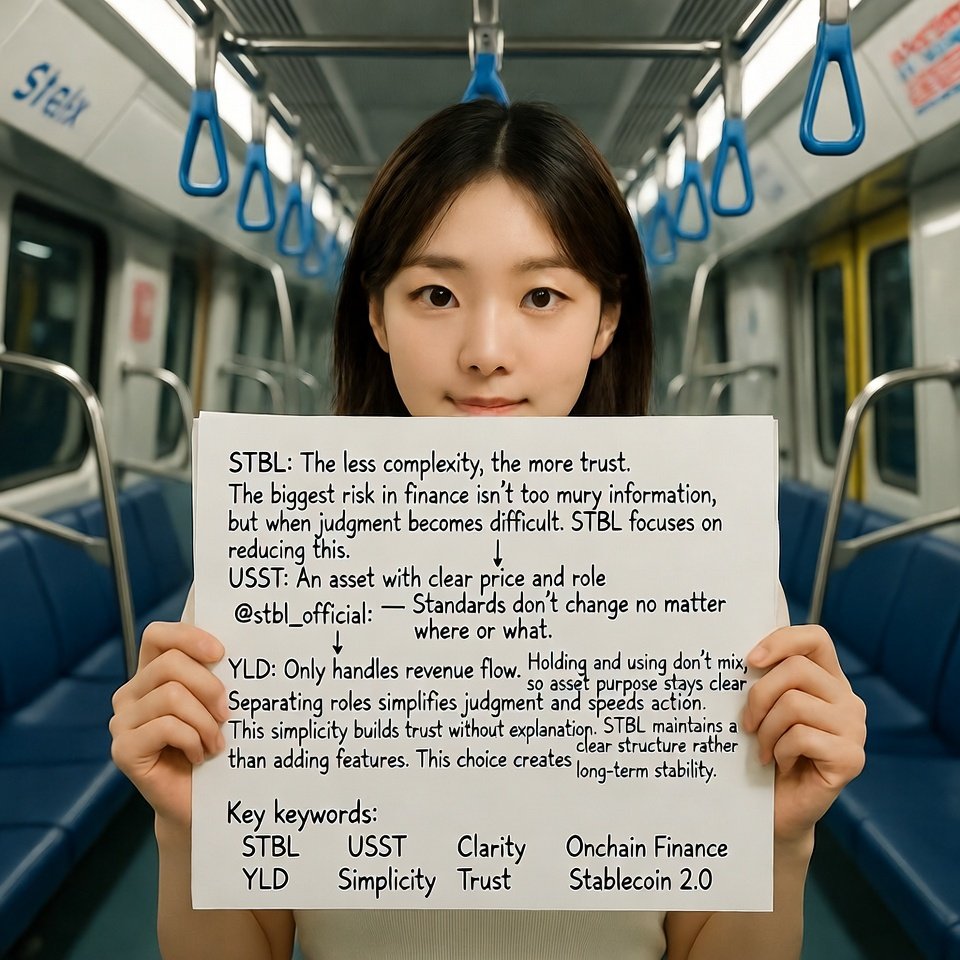 STBL: The less complexity, the more trust.
The biggest risk in finance isn't too mury information,
but when judgment becomes difficult. STBL focuses on
reducing this.
↓
USST: An asset with clear price and role
@stbl_official: — Standards don't change no matter
where or what.
↓
YLD: Only handles revenue flow. Holding and using don't mix,
so asset purpose stays clear
Separating roles simplifies judgment and speeds action.
This simplicity builds trust without explanation. STBL maintains a
clear structure rather
than adding features. This choice creates
long-term stability.
Key keywords:
STBL USST Clarity Onchain Finance
YLD Simplicity Trust Stablecoin 2.0